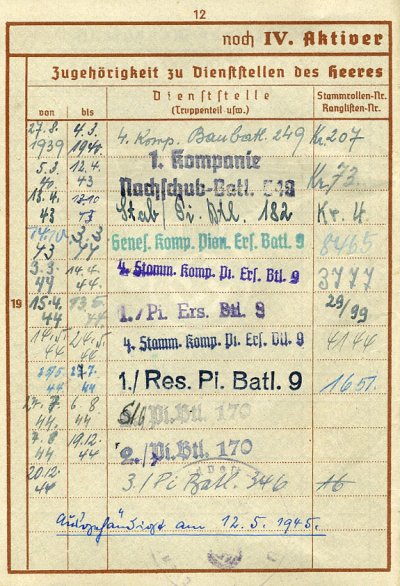 12
noch IV. Aktiver
Zugehörigkeit zu Dienststellen des Heeres
von bis Dienststelle (Truppenteil usw.) Stammrollen-Nr. Ranglisten-Nr.
19
27.8. 1939 4.3. 1940 4. Komp. Baubatl. 249 Kr. 207
5.3. 40 12.4. 43 1. Kompanie Nachschub-Batl. Kr. 73
13.4. 43 43 Stab / Pi. Btl. 182 Kr. 4.
43 3.3. 44 Genes. Komp. Pion. Ers. Batl. 9 8465
3.3. 44 14.4. 44 4. Stamm. Komp. Pi. Ers. Btl. 9 3777
15.4. 44 13.5. 44 1./Pi. Ers. Btl. 9 29/99
14.5. 44 24.5. 44 4. Stamm. Komp. Pi. Ers. Btl. 9 4144
44 44 1./Res. Pi. Batl. 9 1651
27.7. 44. 6.8. 44 Pi. Btl. 170
7.8. 44 19.12. 44 2./Pi. Btl. 170
20.12. 44 3./Pi Batl. 346
Ausgehändigt am 12.5.1945.